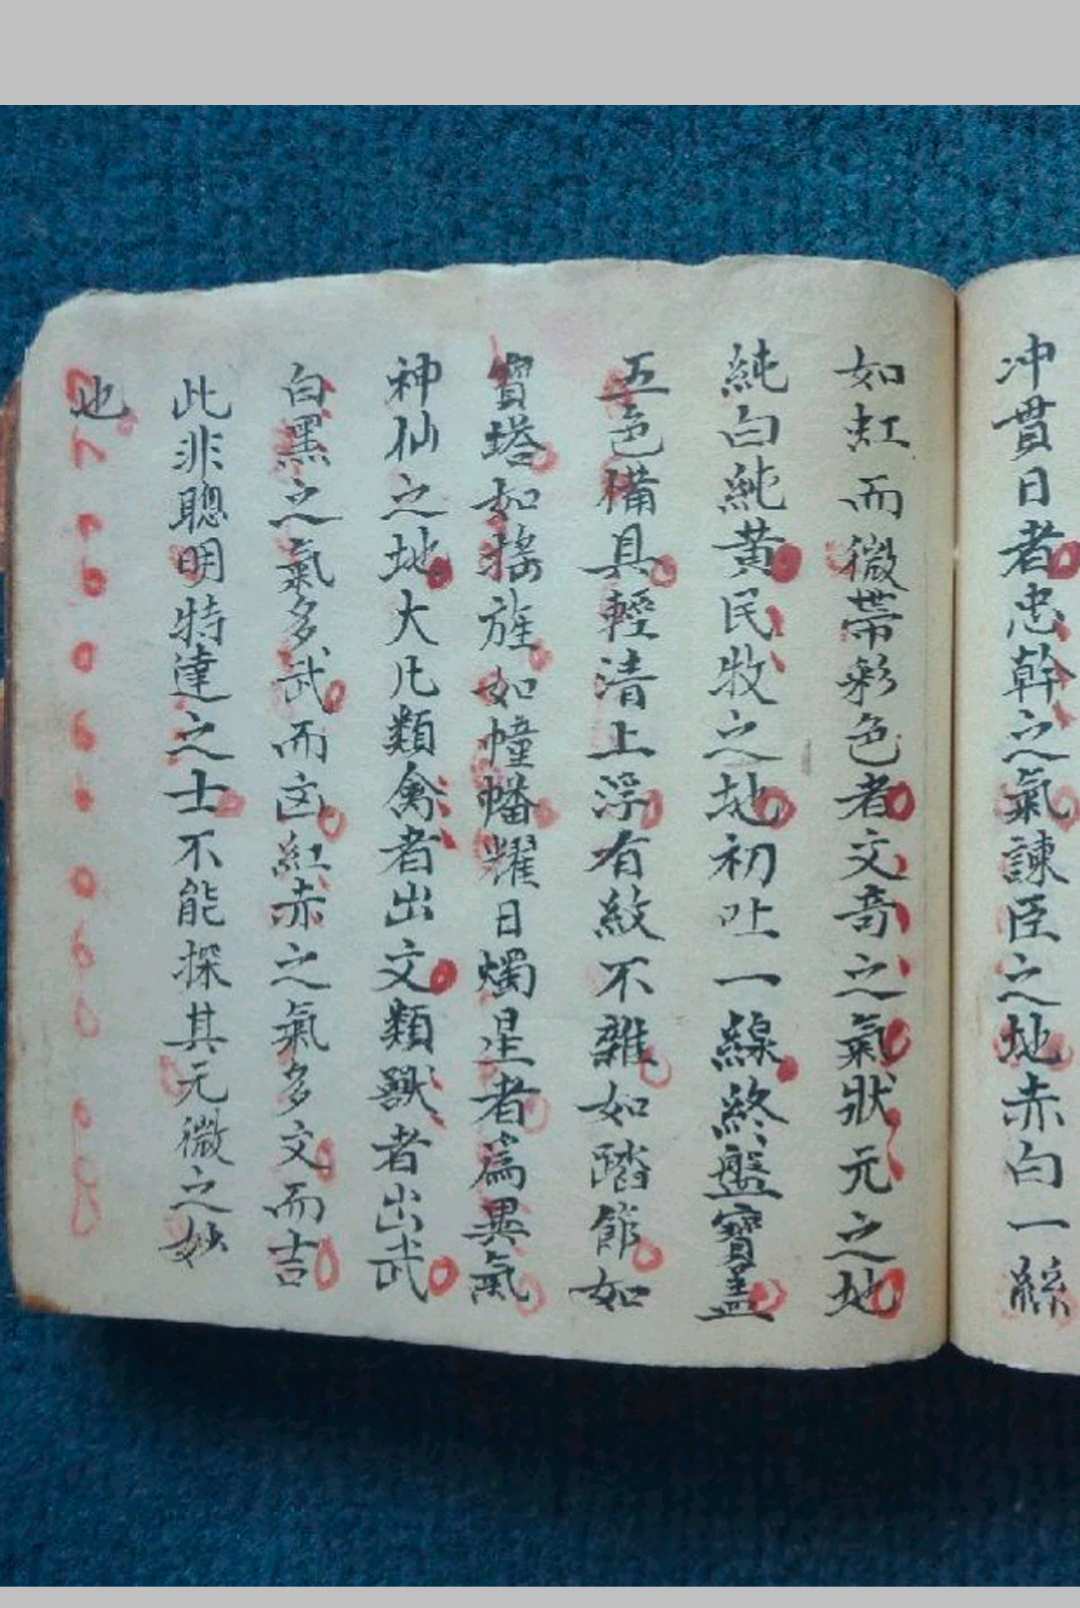 冲貫日者忠幹之氣諫臣之地赤白一縣
如虹而微帶彩色者文竒之氣狀元之地
純白純黃民牧之地初吐一線終盤寶蓋
五色備具輕清上浮有紋不雜如踏節如
寶塔如搖旌如幢幡耀日燭星者為異氣
神仙之地大凡類禽者出文類獸者出武
白黑之氣多武而凶紅赤之氣多文而吉
此非聰明特達之士不能探其元微之妙
也